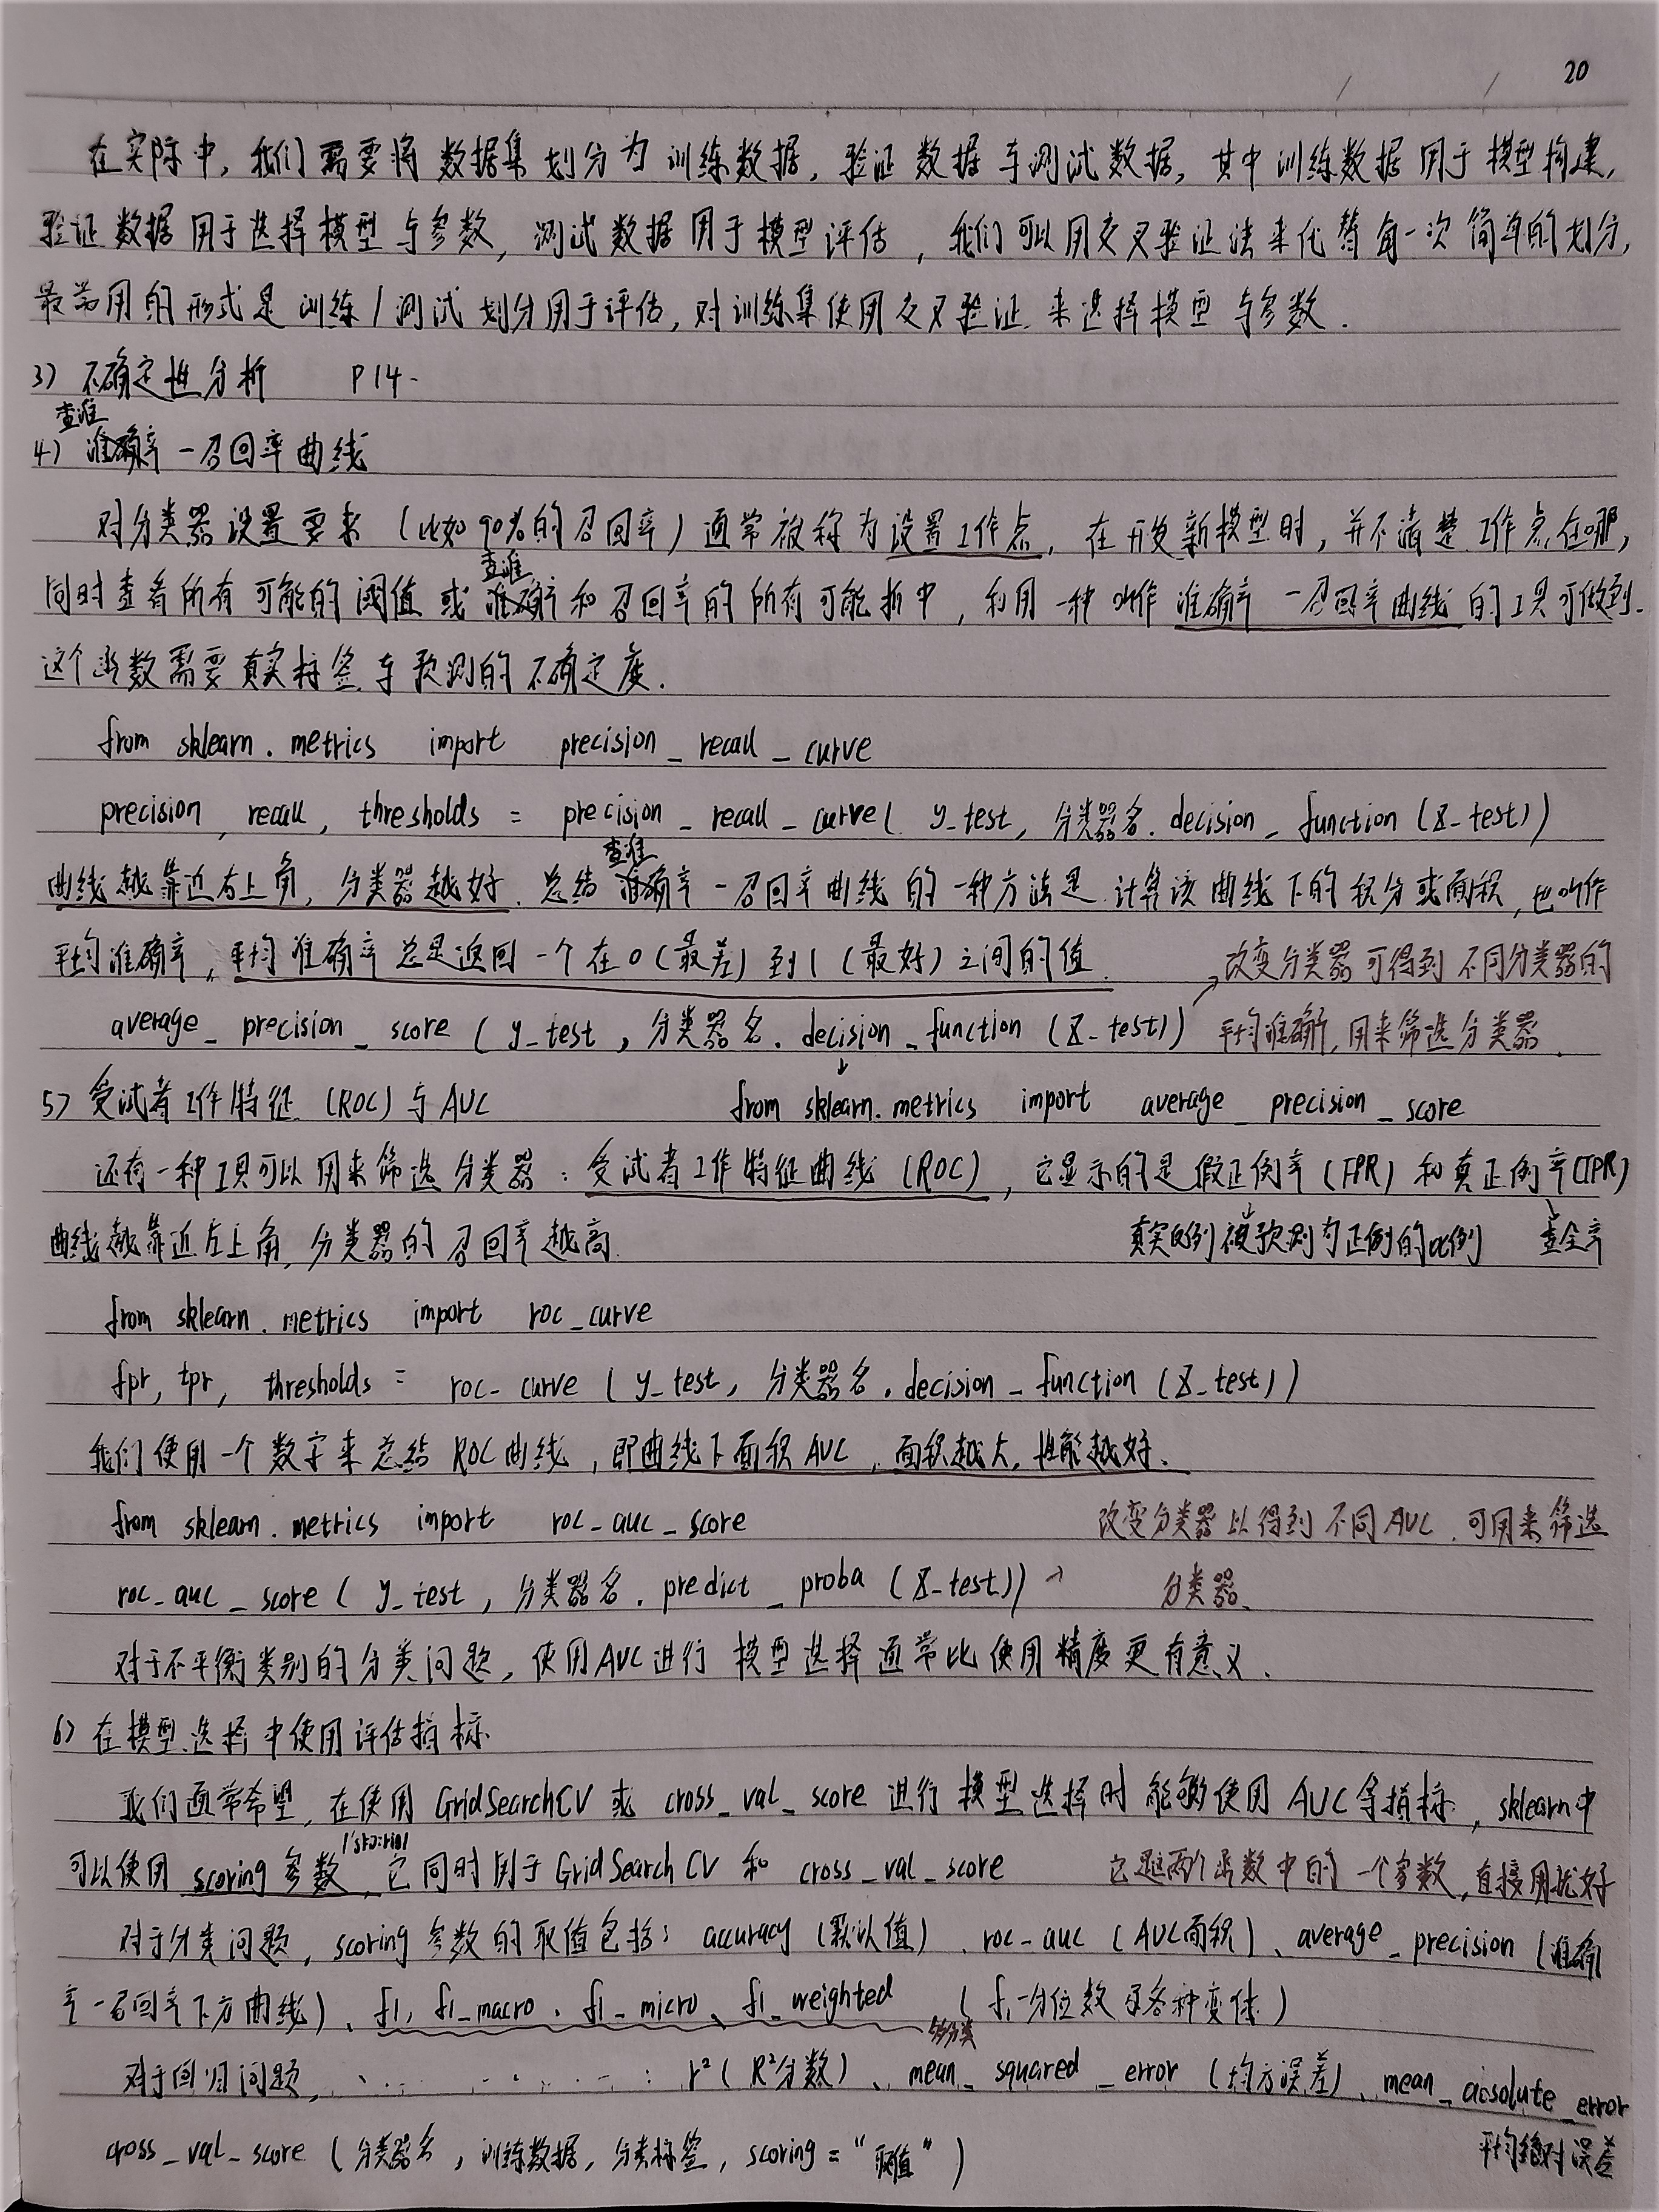 20
在实际中,我们需要将数据集划分为训练数据,验证数据与测试数据,其中训练数据用于模型构建,
验证数据用于选择模型与参数,测试数据用于模型评估,我们可以用交叉验证法来代替每一次简单的划分,
最常用的形式是训练/测试划分用于评估,对训练集使用交叉验证来选择模型与参数.
3) 不确定性分析 P14.
查准
4) 准确率-召回率曲线
对分类器设置要求(比如90%的召回率)通常被称为设置工作点,在开发新模型时,并不清楚工作点在哪,
查准
同时查看所有可能的阈值或准确率和召回率的所有可能折中,利用一种叫作准确率-召回率曲线的工具可做到.
这个函数需要真实标签与预测的不确定度.
from sklearn.metrics import precision_recall_curve
precision, recall, thresholds = precision_recall_curve(y_test, 分类器名.decision_function(X_test))
查准
曲线越靠近右上角,分类器越好.总结准确率-召回率曲线的一种方法是计算该曲线下的积分或面积,也叫作
平均准确率,平均准确率总是返回一个在0(最差)到1(最好)之间的值. 改变分类器可得到不同分类器的
average_precision_score(y_test, 分类器名.decision_function(X_test)) 平均准确率,用来筛选分类器.
5) 受试者工作特征(ROC)与AUC from sklearn.metrics import average_precision_score
还有一种工具可以用来筛选分类器:受试者工作特征曲线(ROC),它显示的是假正例率(FPR)和真正例率(TPR)
曲线越靠近左上角,分类器的召回率越高. 真实反例被预测为正例的比例 查全率
from sklearn.metrics import roc_curve
fpr, tpr, thresholds = roc_curve(y_test, 分类器名.decision_function(X_test))
我们使用一个数字来总结ROC曲线,即曲线下面积AUC,面积越大,性能越好.
from sklearn.metrics import roc_auc_score 改变分类器以得到不同AUC,可用来筛选
roc_auc_score(y_test, 分类器名.predict_proba(X_test)) 分类器.
对于不平衡类别的分类问题,使用AUC进行模型选择通常比使用精度更有意义.
6) 在模型选择中使用评估指标
我们通常希望,在使用GridSearchCV或cross_val_score进行模型选择时能够使用AUC等指标,sklearn中
可以使用scoring参数,它同时用于GridSearchCV和cross_val_score 它是这两个函数中的一个参数,直接用就好
对于分类问题,scoring参数的取值包括:accuracy(默认值)、roc_auc(AUC面积)、average_precision(准确
率-召回率下方曲线)、f1, f1_macro、f1_micro、f1_weighted (f1-分位数及各种变体)
多分类
对于回归问题,……………:r²(R²分数)、mean_squared_error(均方误差)、mean_absolute_error
cross_val_score(分类器名,训练数据,分类标签,scoring="取值") 平均绝对误差